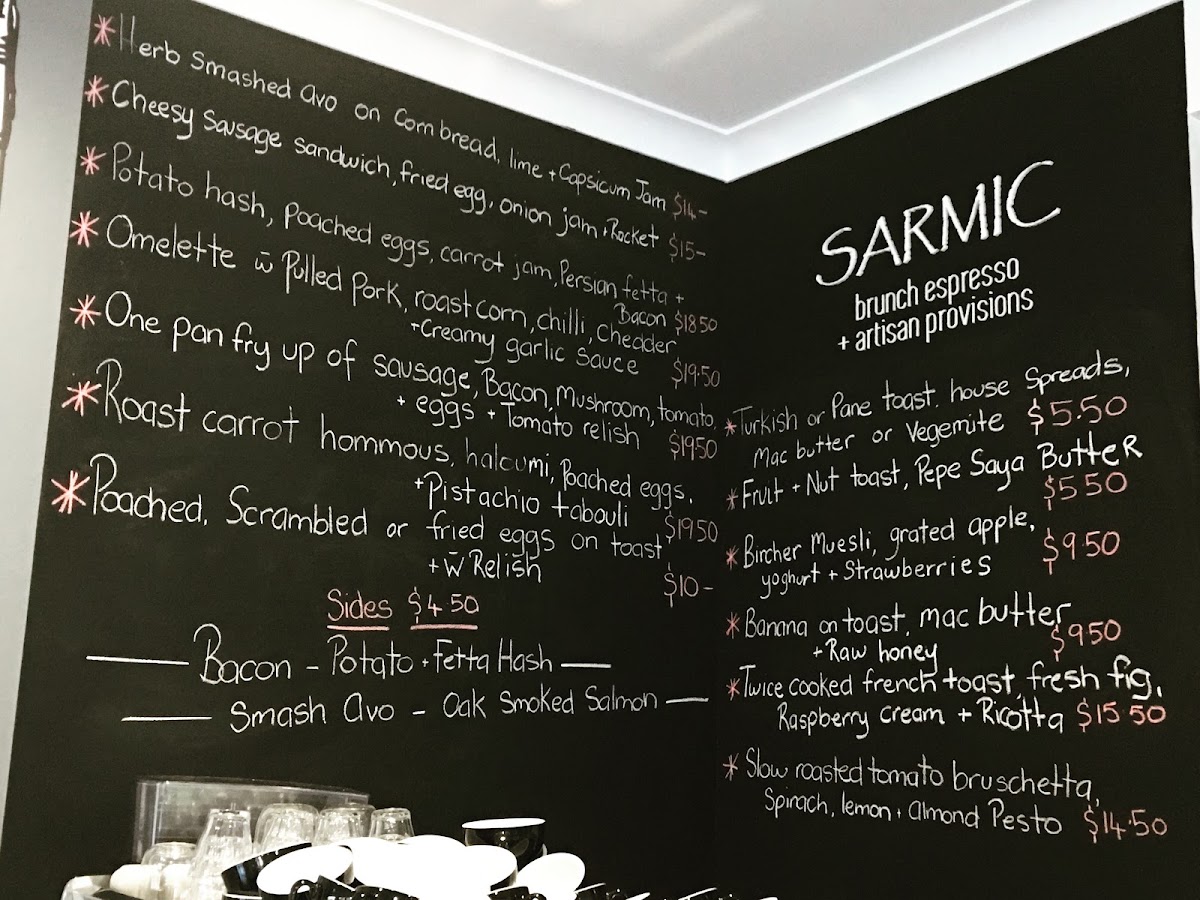 *Herb Smashed avo on Corn bread, lime + Capsicum Jam $14-
*Cheesy Sausage sandwich, fried egg, onion jam + Rocket $15-
*Potato hash, poached eggs, carrot jam, Persian fetta +
Bacon $18.50
*Omelette w̄ Pulled Pork, roast corn, chilli, chedder
+Creamy garlic Sauce $19.50
*One pan fry up of sausage, Bacon, Mushroom, tomato,
+ eggs + Tomato relish $19.50
*Roast carrot hommous, haloumi, Poached eggs,
+Pistachio tabouli $19.50
*Poached, Scrambled or fried eggs on toast
+ w̄ Relish $10-
Sides $4.50
Bacon - Potato + Fetta Hash
Smash avo - Oak Smoked Salmon
SARMIC
brunch espresso
+ artisan provisions
*Turkish or Pane toast. house Spreads,
Mac butter or Vegemite $5.50
*Fruit + Nut toast, Pepe Saya Butter
$5.50
*Bircher Muesli, grated apple,
yoghurt + Strawberries $9.50
*Banana on toast, mac butter
+Raw honey $9.50
*Twice cooked french toast, fresh fig,
Raspberry cream + Ricotta $15.50
*Slow roasted tomato bruschetta,
Spinach, lemon + almond Pesto $14.50